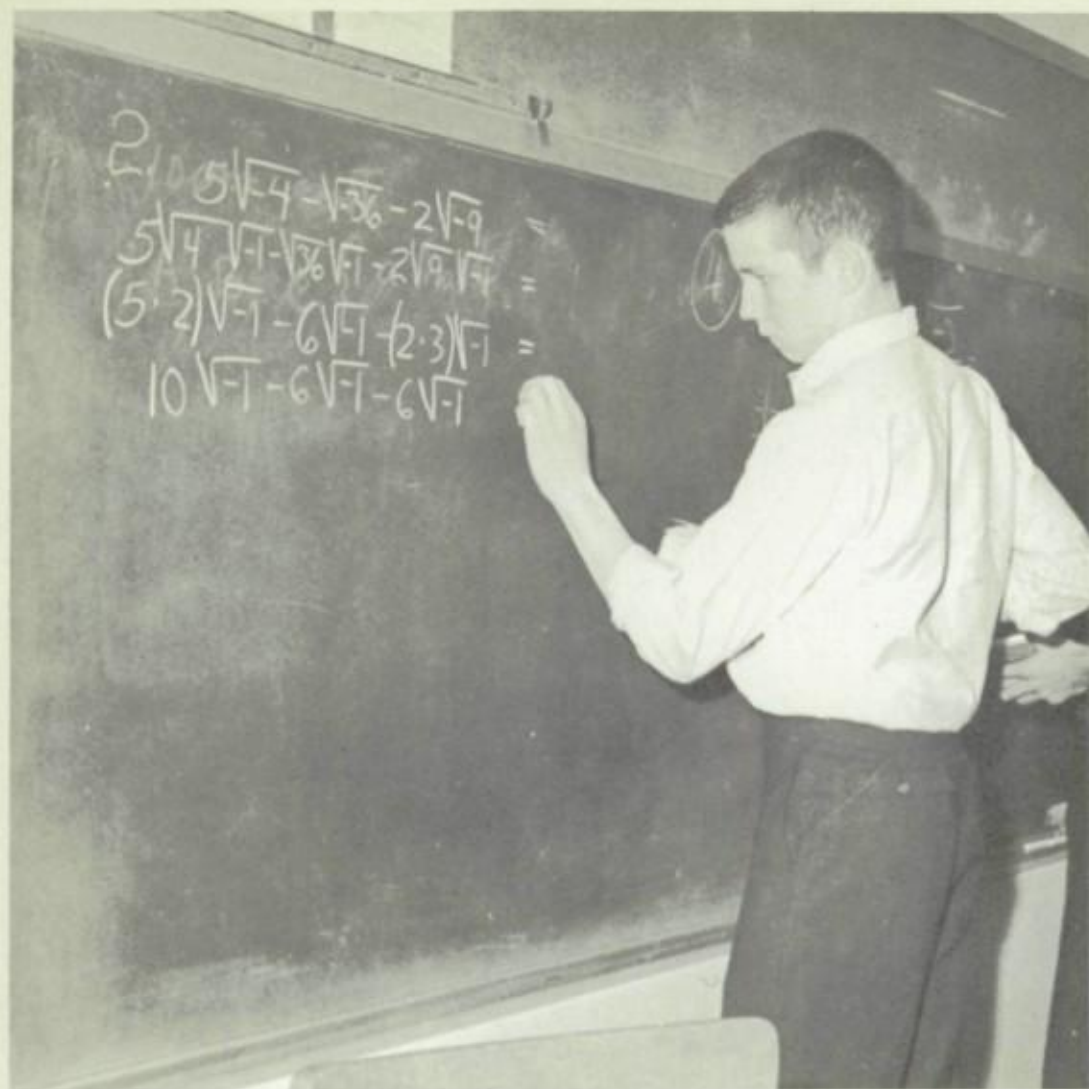 2. 5√-4 - √-36 - 2√-9 =
5√4 √-1 - √36 √-1 - 2√9 √-1 =
(5·2)√-1 - 6√-1 - (2·3)√-1 =
10√-1 - 6√-1 - 6√-1
4